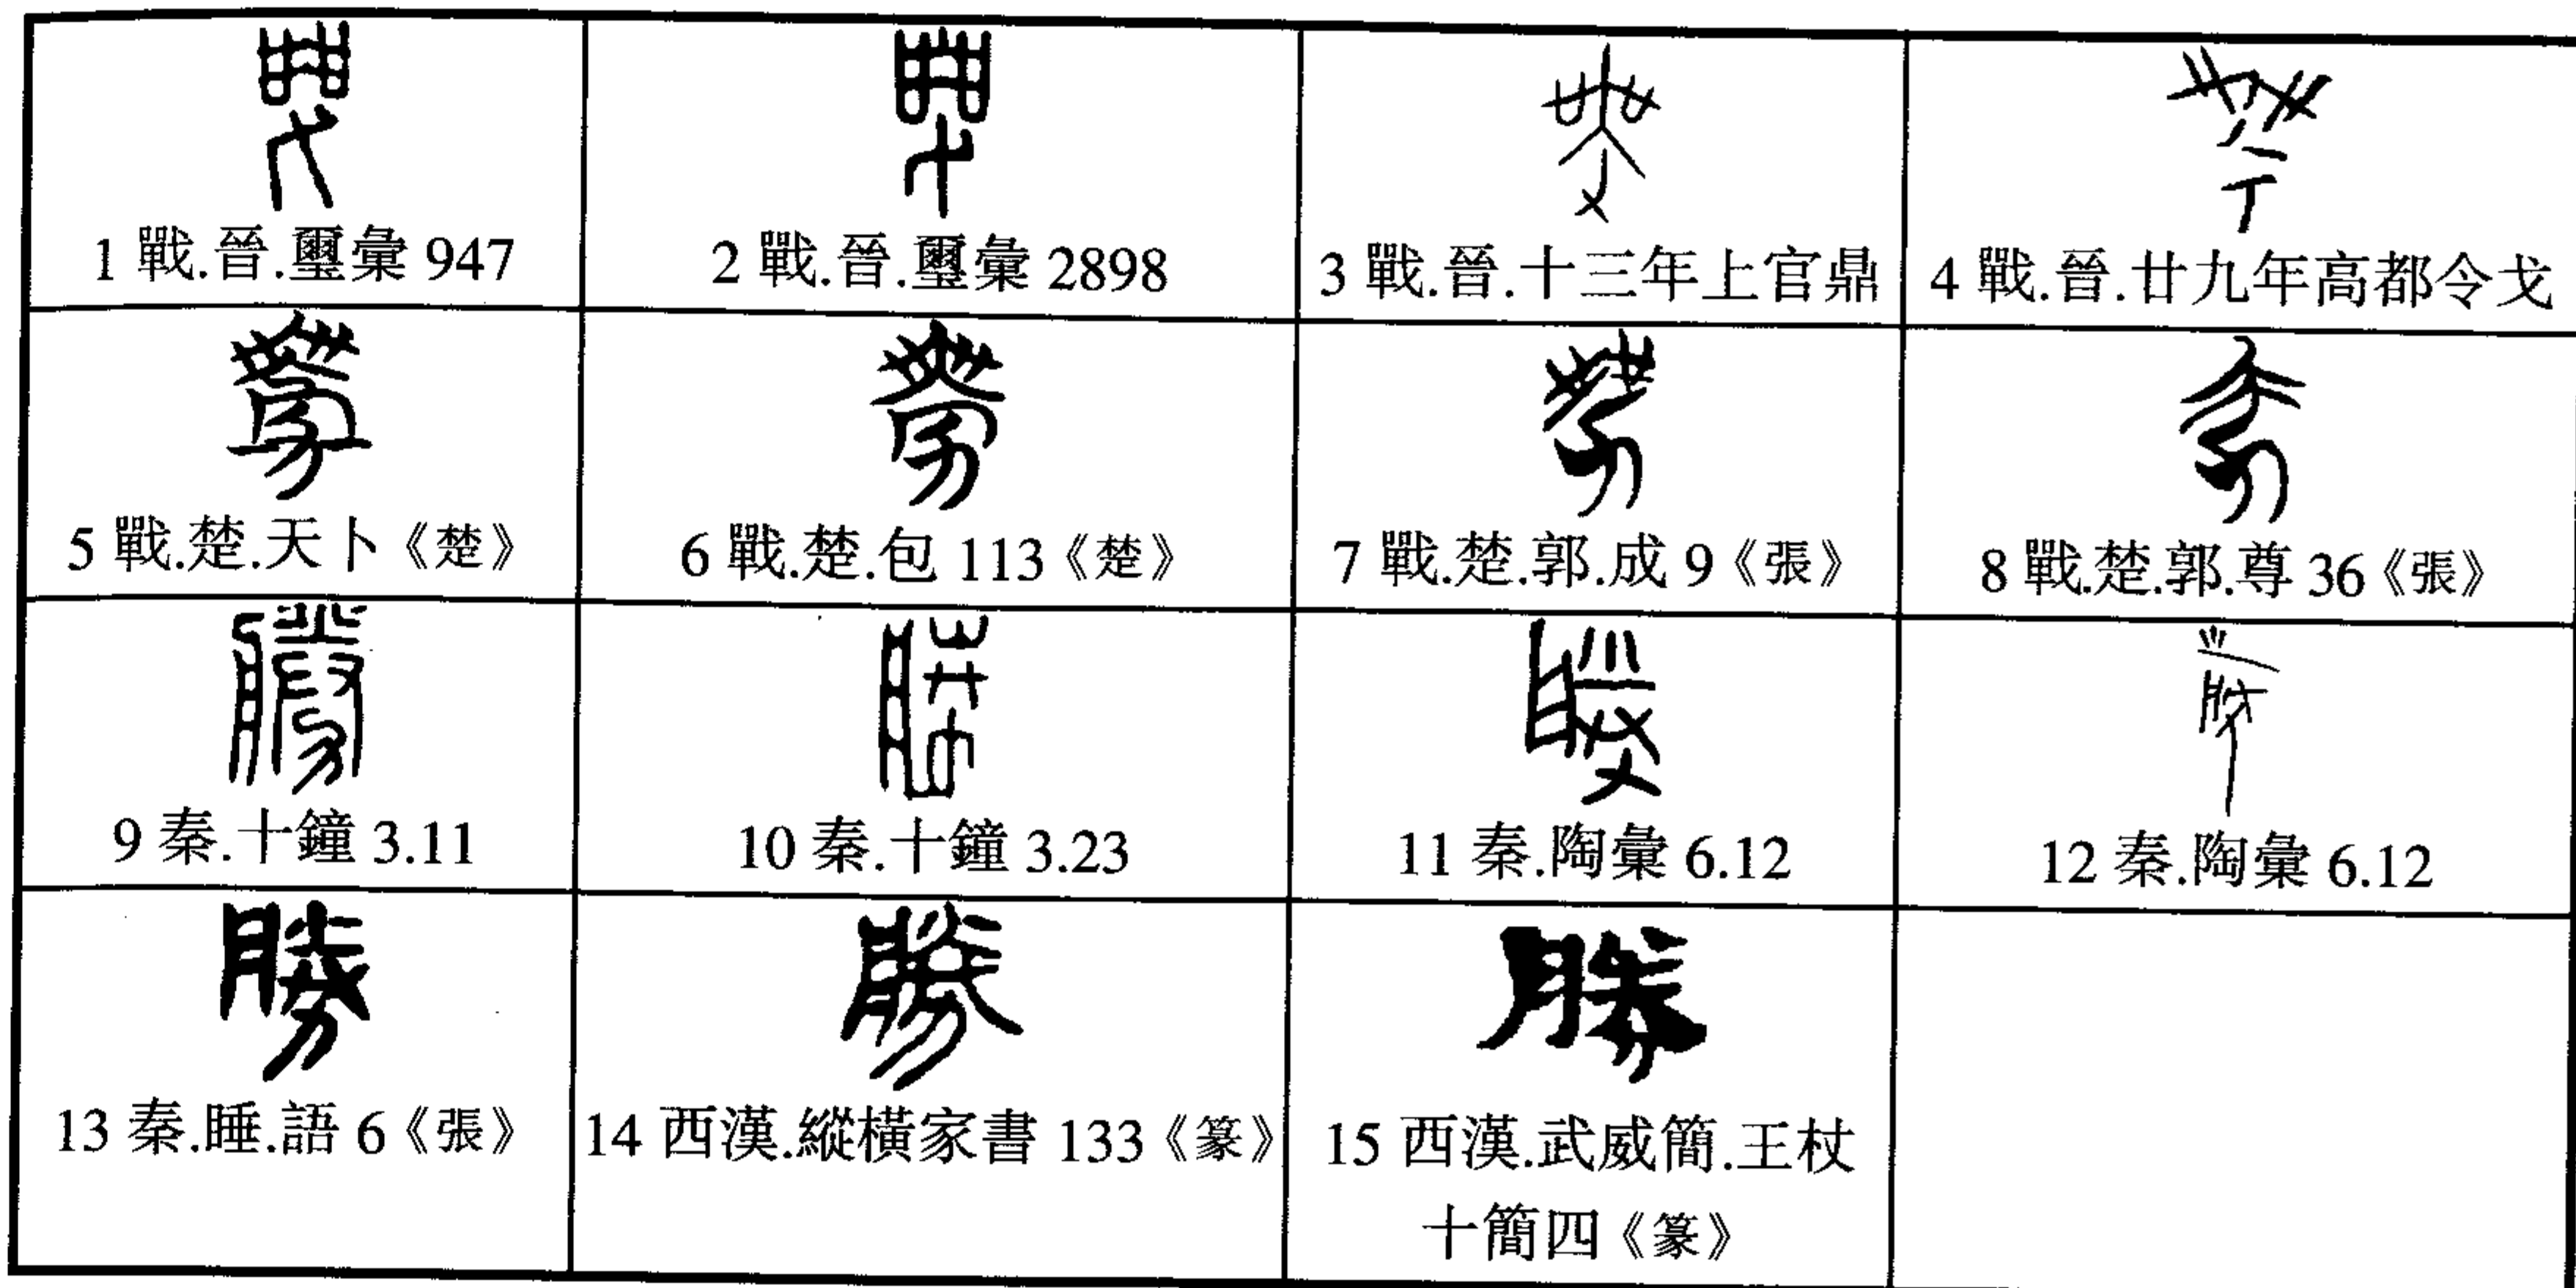 1 戰.晉.璽彙 947
2 戰.晉.璽彙 2898
3 戰.晉.十三年上官鼎
4 戰.晉.廿九年高都令戈
5 戰.楚.天卜《楚》
6 戰.楚.包 113《楚》
7 戰.楚.郭.成 9《張》
8 戰.楚.郭.尊 36《張》
9 秦.十鐘 3.11
10 秦.十鐘 3.23
11 秦.陶彙 6.12
12 秦.陶彙 6.12
勝
勝
勝
13 秦.睡.語 6《張》
14 西漢.縱橫家書 133《篆》
15 西漢.武威簡.王杖
十簡四《篆》